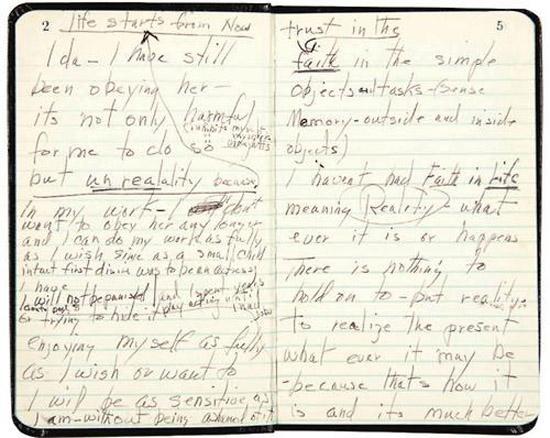 2
life starts from Now
Ida – I have still
been obeying her –
its not only harmful
(inhibits myself
for me to do so
but unrealality because
In my work – I dont
want to obey her any longer
and I can do my work as fully
as I wish since as a small child
intact first desire was to be an actress
I have
I will not be punished and I spent years
or trying to hide it play acting until I had
enjoying myself as fully
as I wish or want to
I will be as sensitive as
I am – without being ashamed of it
5
trust in the
faith in the simple
objects and tasks – (sense
Memory – outside and inside
objects)
I havent had Faith in Life
meaning Reality – what
ever it is or happens
There is nothing to
hold on to – but reality
To realize the present
what ever it may be
– because thats how it
is and its much better